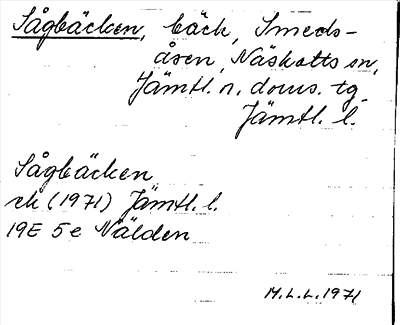 Sågbäcken, bäck, Smeds-
åsen, Näskotts sn,
Jämtl. n. doms. tg
Jämtl. l.
Sågbäcken
rk (1971) Jämtl. l.
19E 5e Nälden
M.L.L. 1971